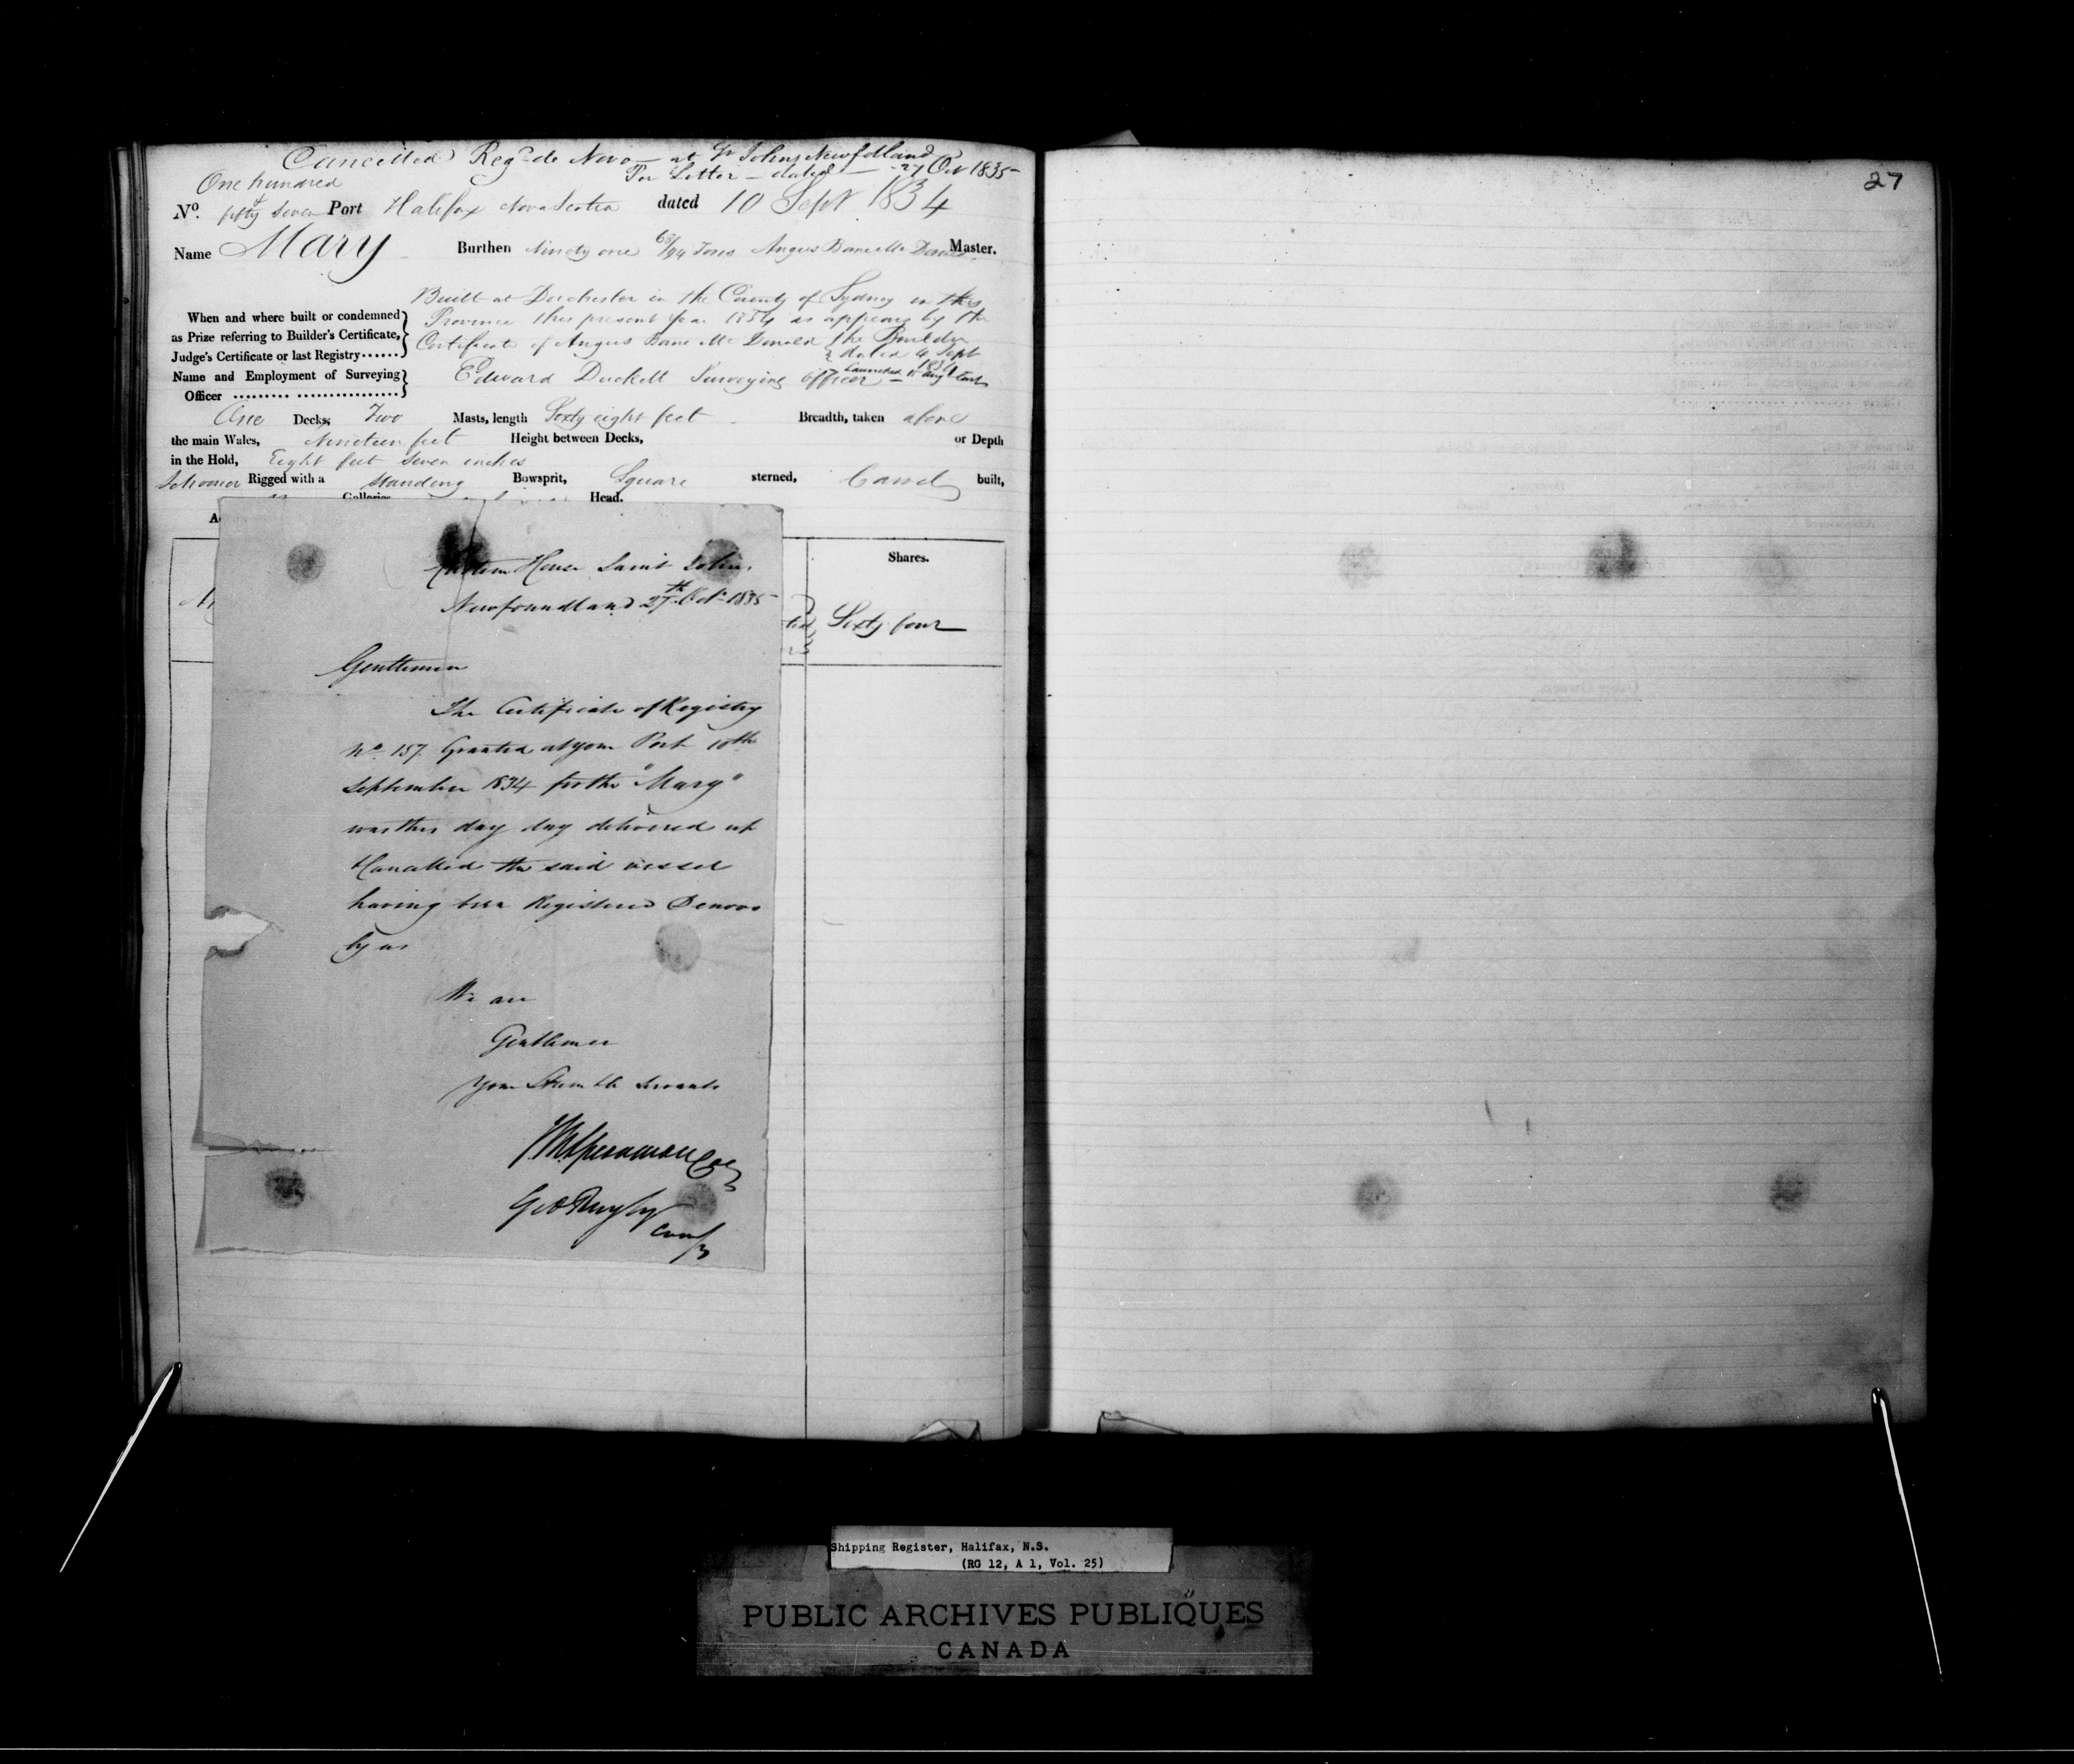 Cancelled Regd de Novo — at St Johns Newfdland
Per Letter — dated — 27 Oct 1835
One hundred
No. & fifty seven Port Halifax Nova Scotia dated 10 Sept 1834
Name Mary Burthen Ninety one 68/94 Tons Angus Bane Mc Donald Master.
Built at Dorchester in the County of Sydney in this
When and where built or condemned Province this present Year 1834 as appears by the
as Prize referring to Builder's Certificate, Certificate of Angus Bane Mc Donald the Builder
Judge's Certificate or last Registry...... dated 4 Sept 1834
Name and Employment of Surveying Edward Duckett Surveying Officer — Launched 15 Aug
Officer ......... ................
One Decks, Two Masts, length Sixty eight feet Breadth, taken above
the main Wales, Nineteen feet Height between Decks, or Depth
in the Hold, Eight feet seven inches
Schooner Rigged with a standing Bowsprit, Square sterned, Carvel built,
Galleries Head.
Shares.
Sixty four
Custom House Saint John,
Newfoundland 27th Octr 1835
Gentlemen
The Certificate of Registry
No 157. Granted at your Port 10th
September 1834 for the "Mary"
was this day day delivered up
& Cancelled the said vessel
having been Registered Denovo
by us
We are
Gentlemen
Your Humble Servants
JM Spearman Colr
Geo Rugby
Comp
27
Shipping Register, Halifax, N.S.
(RG 12, A 1, Vol. 25)
PUBLIC ARCHIVES PUBLIQUES
CANADA